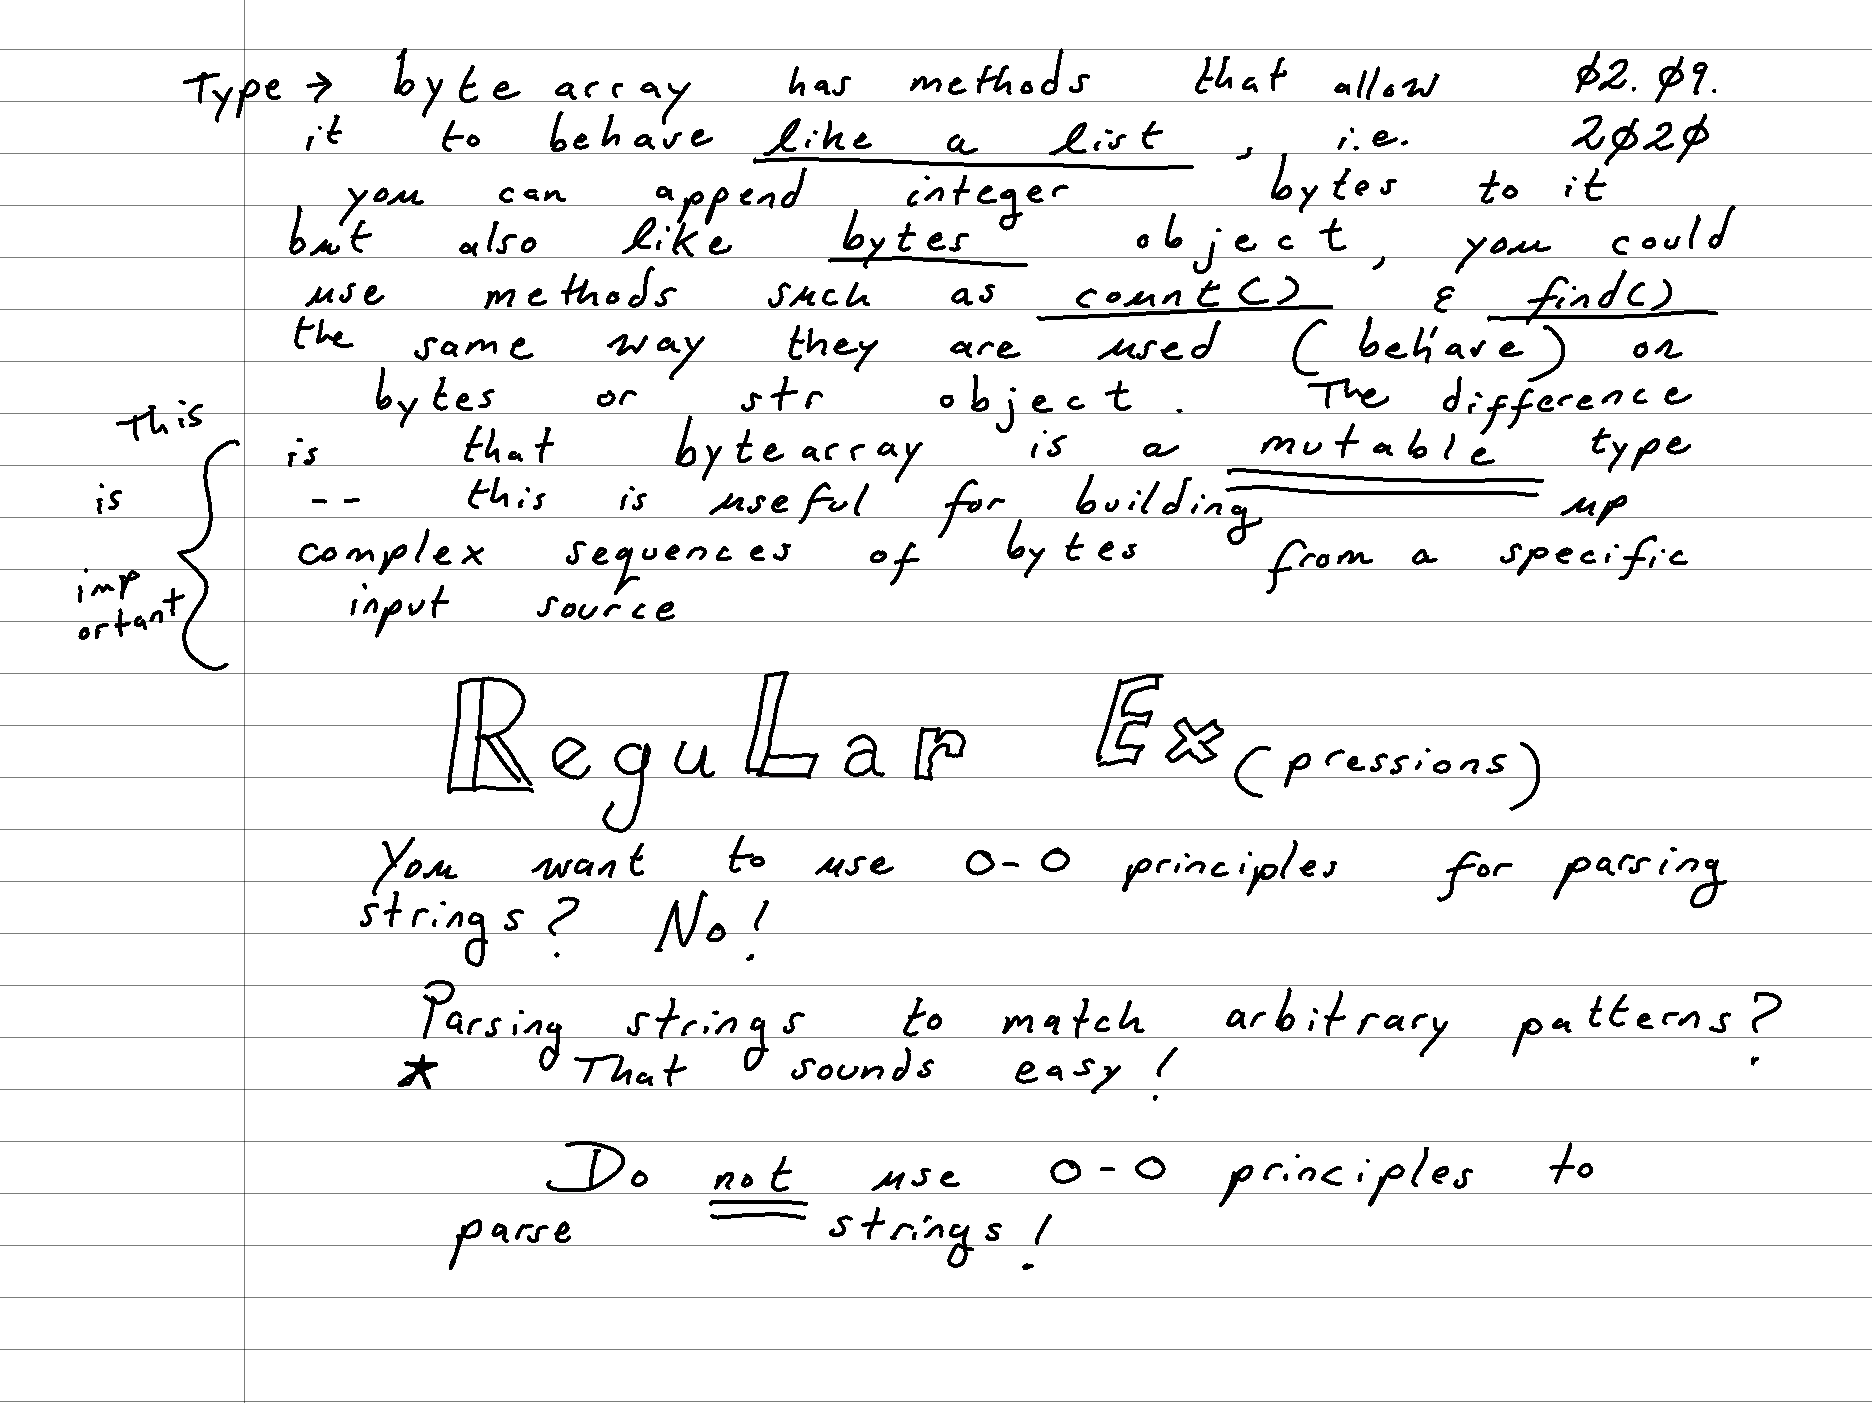 Type → byte array has methods that allow ∅2. ∅9.
it to behave like a list, i.e. 2∅2∅
you can append integer bytes to it
but also like bytes object, you could
use methods such as count() & find()
the same way they are used (behave) on
bytes or str object. The difference
This
is that bytearray is a mutable type
is -- this is useful for building up
complex sequences of bytes from a specific
imp
ortant
input source
ReguLar Ex(pressions)
You want to use O-O principles for parsing
strings? No!
Parsing strings to match arbitrary patterns?
* That sounds easy!
Do not use O-O principles to
parse strings!